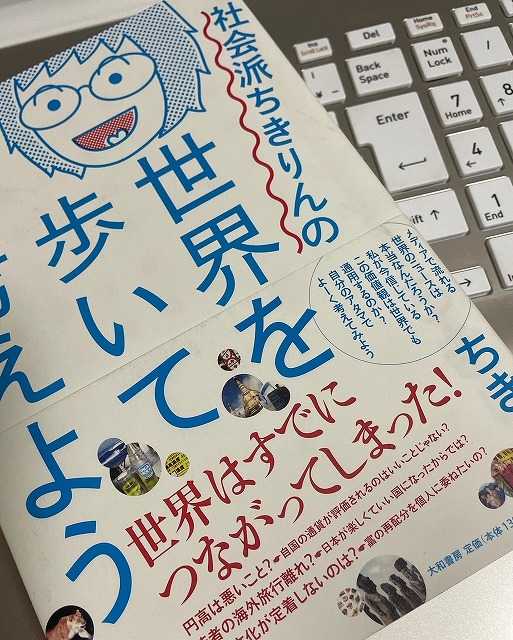 社会派ちきりんの
世界を
歩いて
考えよう
メディアで流れる
世界のニュースは
本当なんだろうか？
私が今信じている
この価値観は世界でも
通用するのか？
自分のアタマで
よーく考えてみよう
ちき
世界はすでに
つながってしまった！
円高は悪いこと？
自国の通貨が評価されるのはいいことじゃない？
者の海外旅行離れ？
日本が楽しくていい国になったからでは？
文化が定着しないのは？
富の再配分を個人に委ねたいの？
大和書房 定価（本体13
Scroll Lock
Del
Home
SysRq
End
PrtSc
Back
Space
Num
Lock
/
¥
Enter
7
Home
8
4
ift ↑
↑
1
End